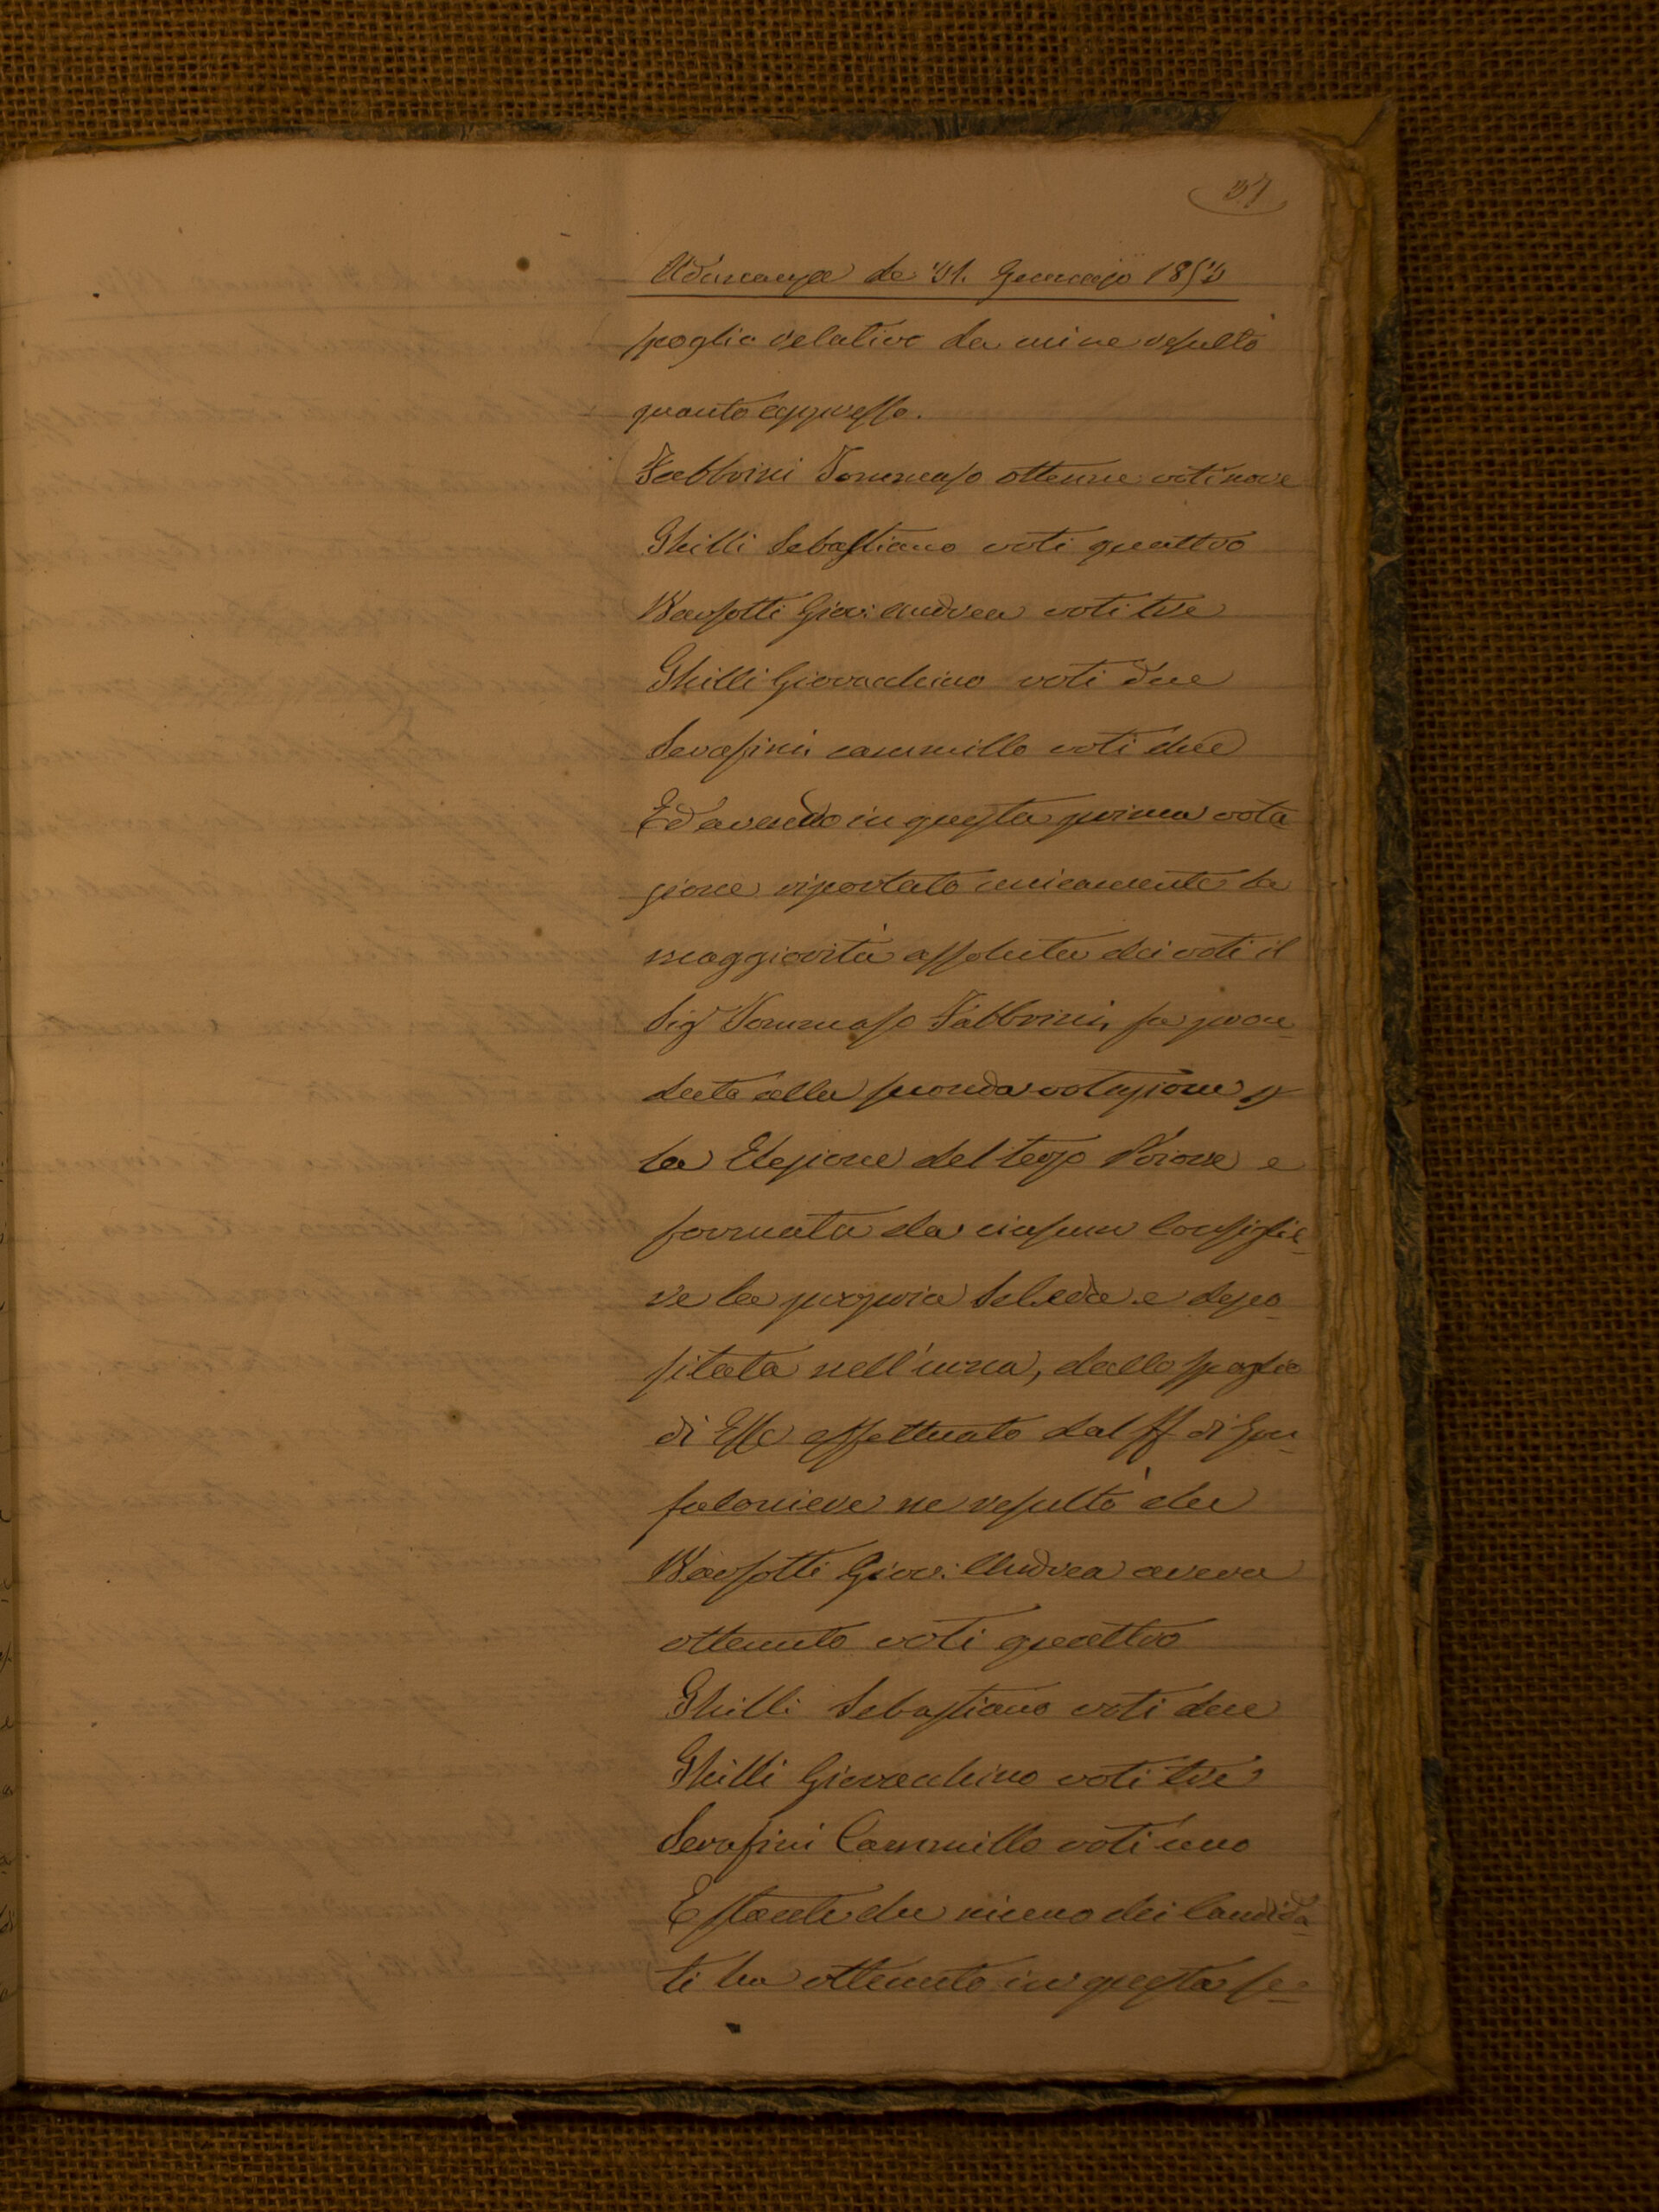 37
Adunanza de 31. Gennajo 1853
spoglio relativo da mi ne resultò
quanto appresso.
Fabbrini Tommaso ottenne voti nove
Ghilli Sebastiano voti quattro
Barsotti Giov: Andrea voti tre
Ghilli Giovacchino voti due
Serafini cammillo voti due
Ed avendo in questa prima vota
zione riportato unicamente la
maggiorità assoluta dei voti il
Sig Tommaso Fabbrini, fu proce
duto alla seconda votazione p
la Elezione del terzo Priore e
formata da ciascun Consiglie-
re la propria Scheda e depo-
sitata nell'urna, dallo spoglio
di Esse effettuato dal ff di Gon-
faloniere ne resultò che
Barsotti Giov: Andrea aveva
ottenuto voti quattro
Ghilli Sebastiano voti due
Ghilli Giovacchino voti tre
Serafini Cammillo voti uno
E stante che niuno dei Candida-
ti ha ottenuto in questa se-